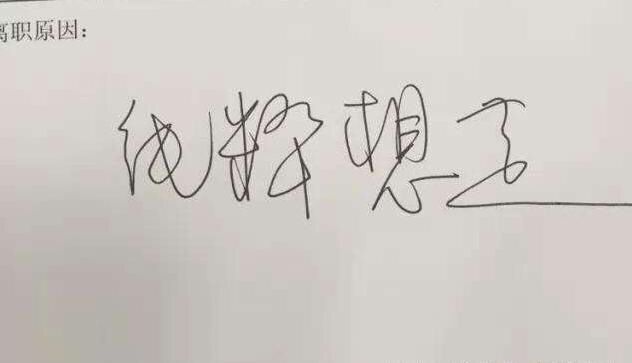 离职原因：
纯粹想走